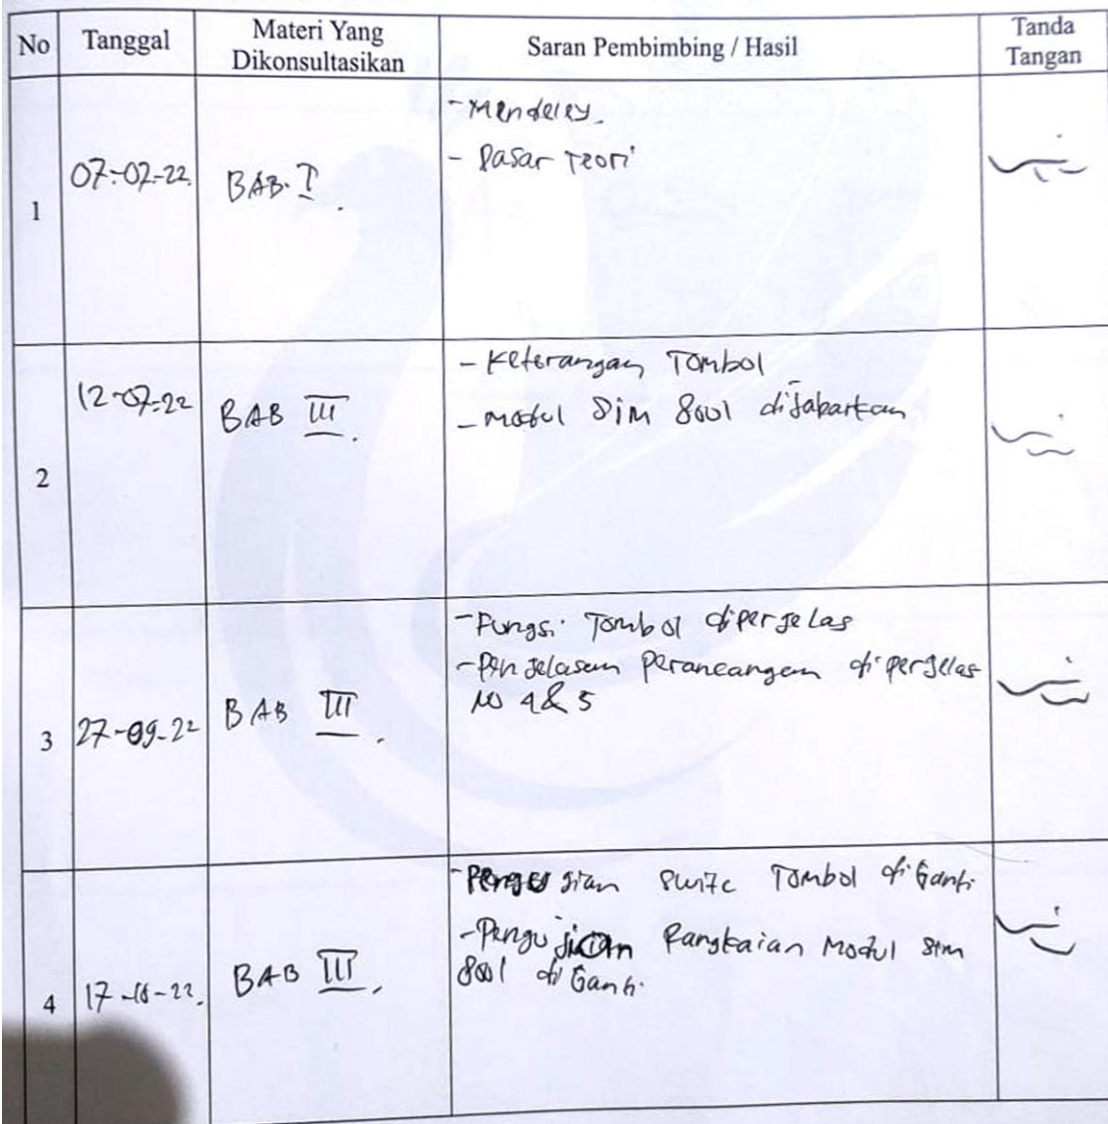 No Tanggal Materi Yang Dikonsultasikan Saran Pembimbing / Hasil Tanda Tangan
1 07-07-22 BAB. I.
- Mendeley.
- Dasar Teori
2 12-07-22 BAB III.
- Keterangan Tombol
- Modul Sim 800l dijabarkan
3 27-09-22 BAB III.
- Fungsi Tombol diperjelas
- Penjelasan Perancangan diperjelas
No 4 & 5
4 BAB III.
- Pengujian Switc Tombol diganti
- Pengujian Rangkaian Modul Sim
800l diganti.